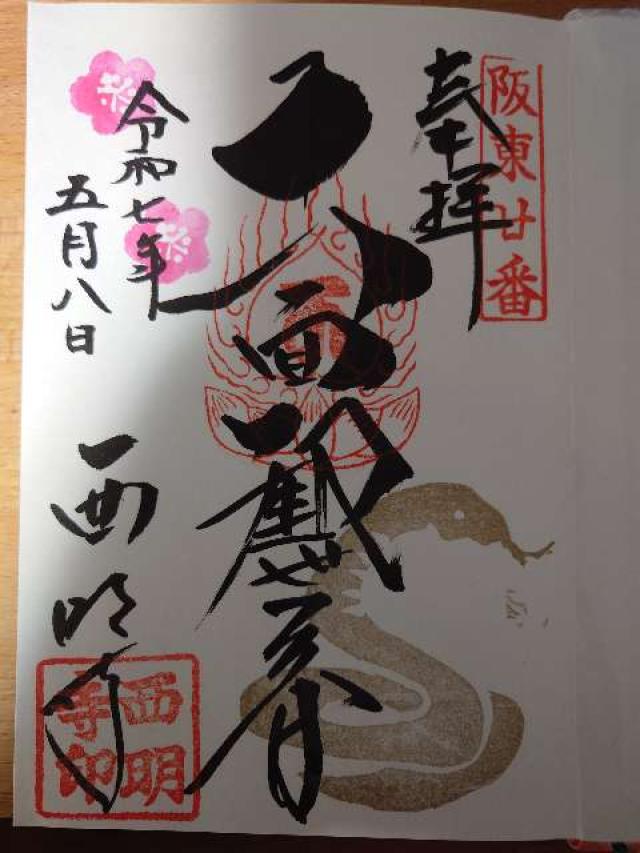 阪東廿番
奉拝
十一面観世音
令和七年
五月八日
西明寺
西明寺印